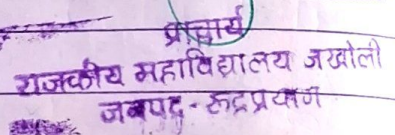 प्राचार्य
राजकीय महाविद्यालय जखोली
जनपद - रुद्रप्रयाग